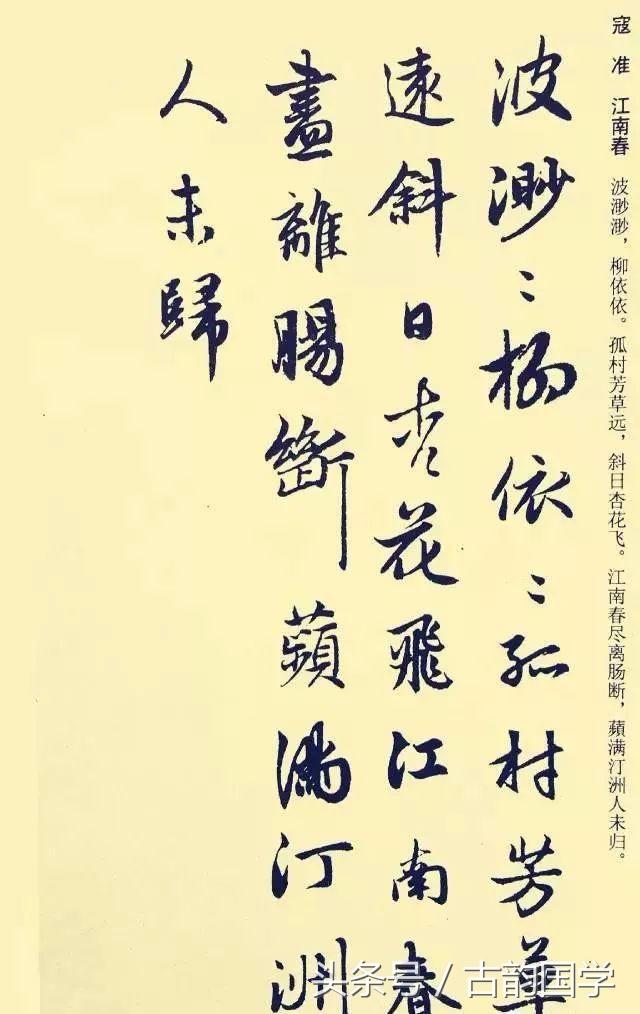 寇 准 江南春 波渺渺，柳依依。孤村芳草远，斜日杏花飞。江南春尽离肠断，蘋满汀洲人未归。
波渺〻柳依〻孤村芳草
遠斜日杏花飛江南春
盡離腸斷蘋滿汀洲
人未歸
头条号 / 古韵国学